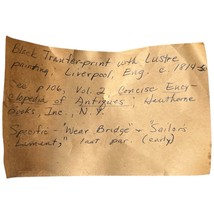 black Transfer-print with Lustre
painting. Liverpool, Eng. c. 1814
See p106, Vol. 2 Concise Ency-
clopedia of Antiques, Hawthorne
Books, Inc., N.Y.
Specific - "Wear Bridge" - "Sailor's
Lament," last par. (early)